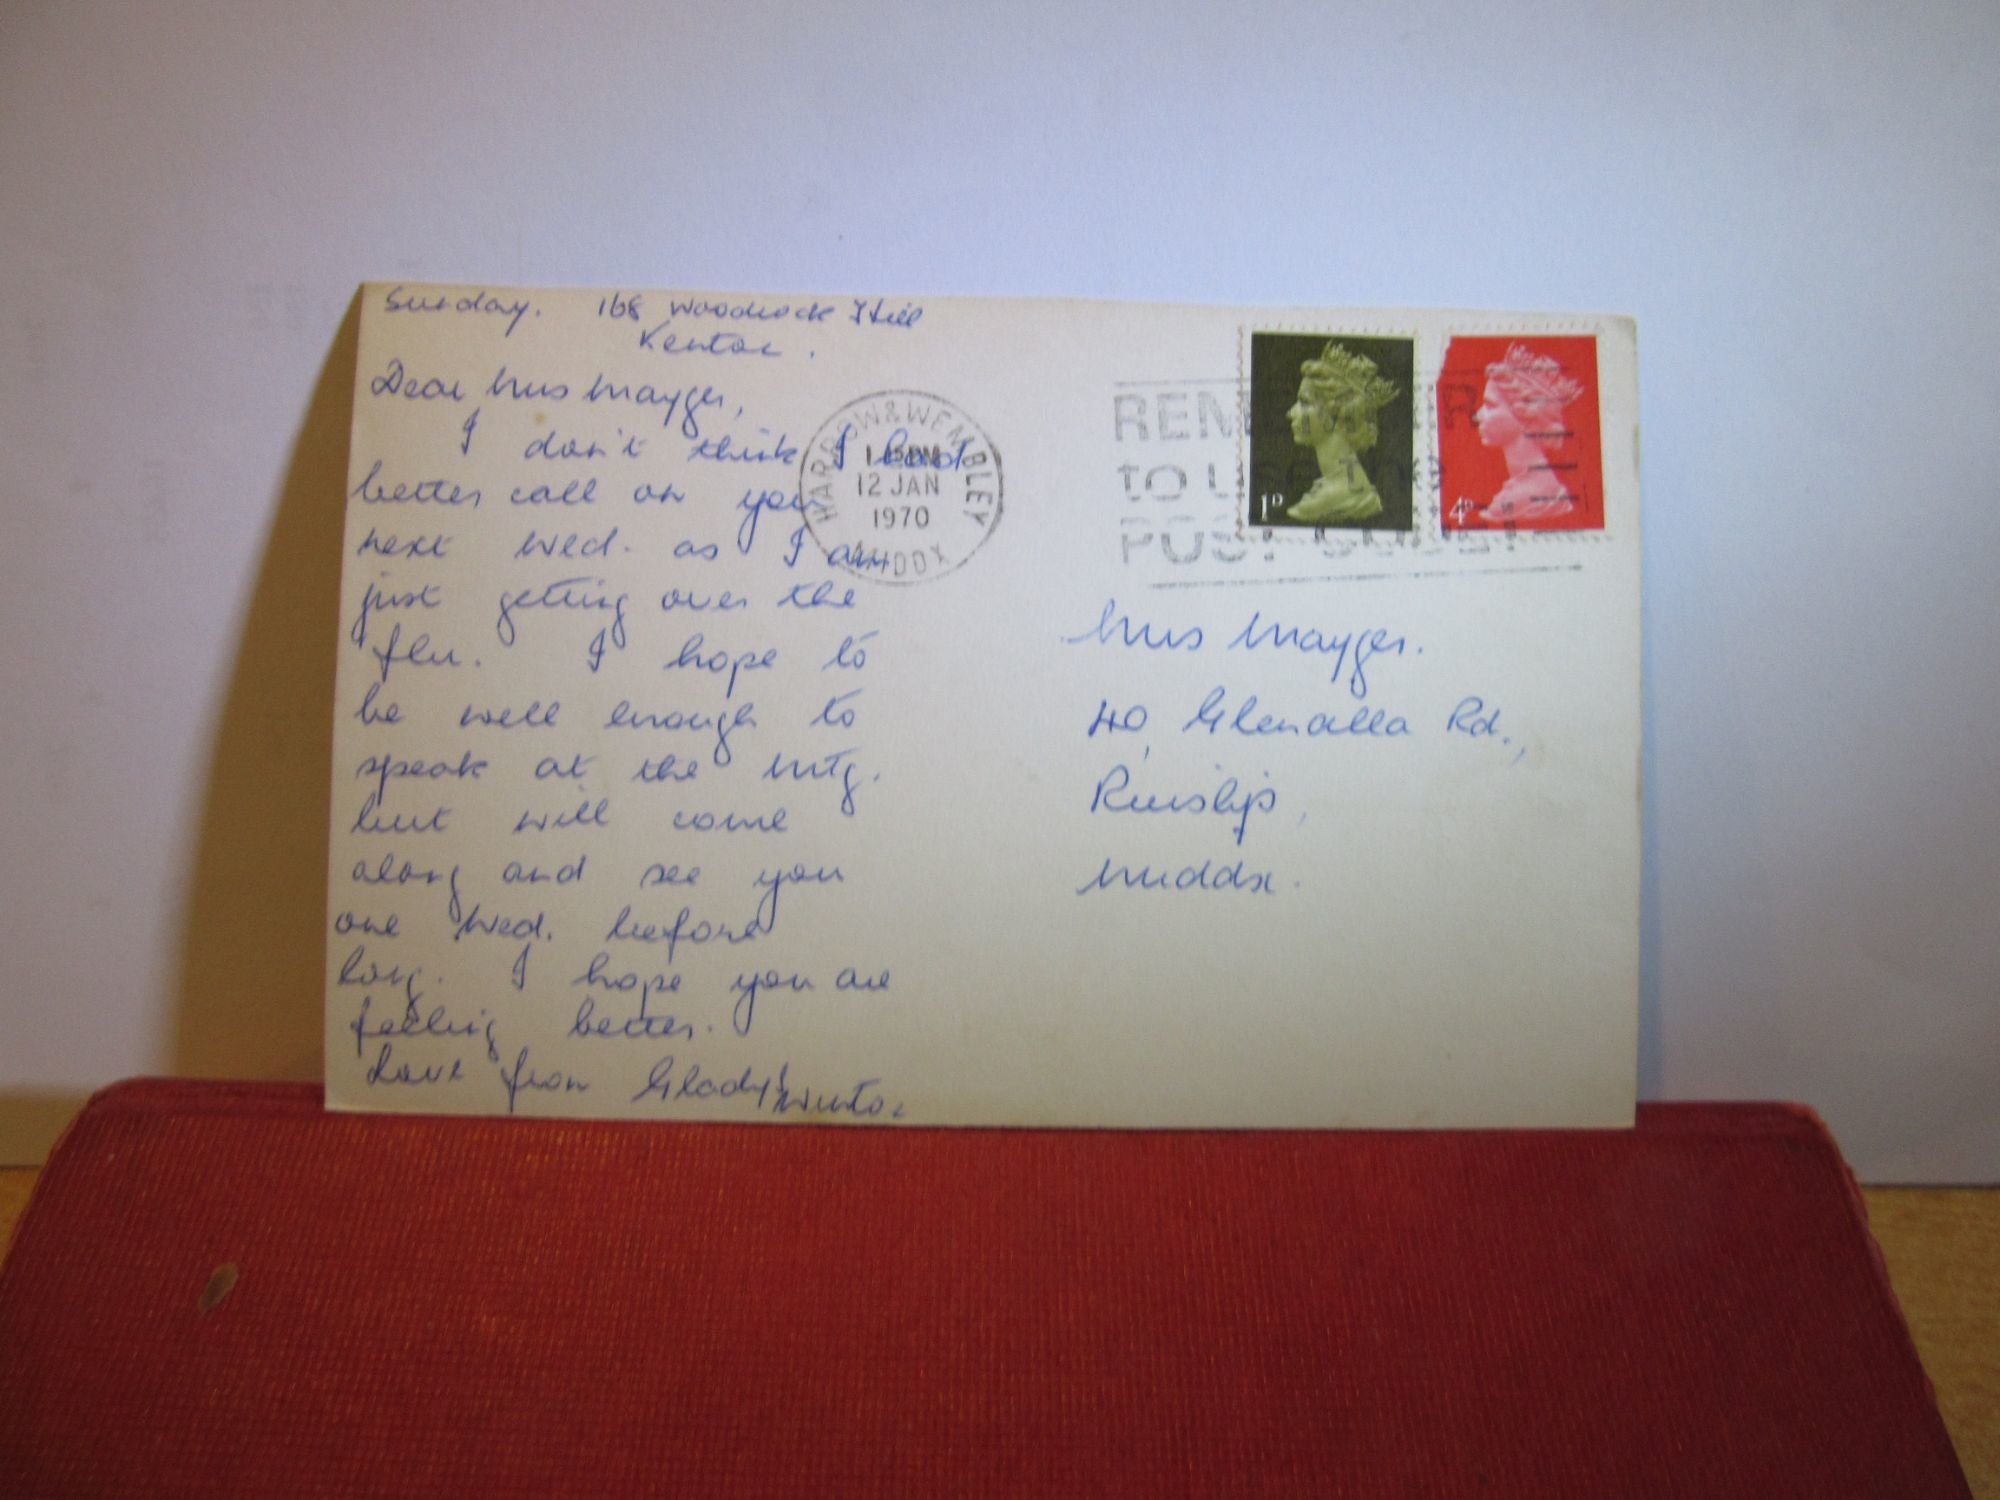 Sunday. 168 Woodcock Hill
Kenton.
Dear Mrs Mayger,
I don't think I had
better call on you
next Wed. as I am
just getting over the
flu. I hope to
be well enough to
speak at the Mtg.
but will come
along and see you
one Wed. before
long. I hope you are
feeling better.
Love from Gladys Winton
HARROW & WEMBLEY
PM
12 JAN
1970
MIDDX
REMEMBER
TO USE THE
POST CODE
1D
4D
Mrs Mayger.
40, Glenalla Rd.,
Ruislip,
Middx.